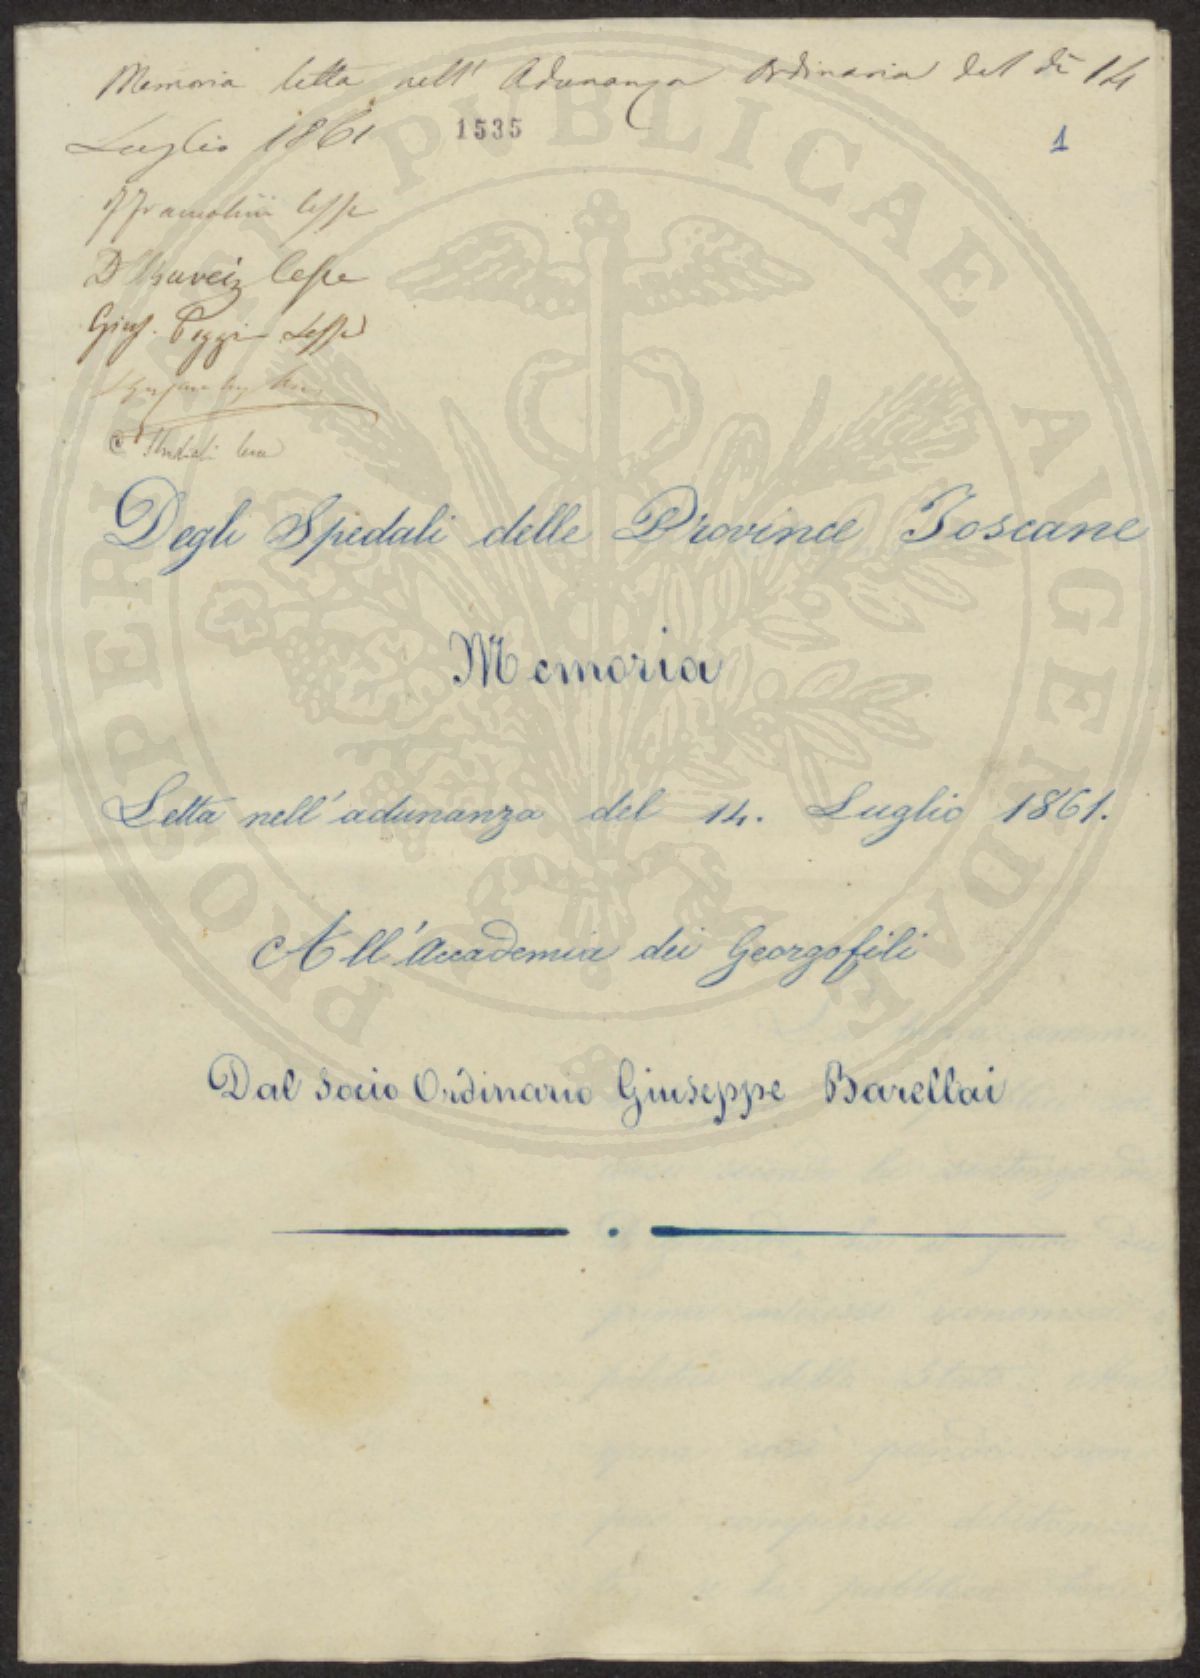 Memoria letta nell' Adunanza Ordinaria del dì 14
Luglio 1861
1535
1
lesse
lesse
Gius. Poggi lesse
Degli Spedali delle Province Toscane
Memoria
Letta nell' adunanza del 14. Luglio 1861.
All' Accademia dei Georgofili
Dal socio Ordinario Giuseppe Barellai
PROSPERITATI PUBLICAE AUGENDAE